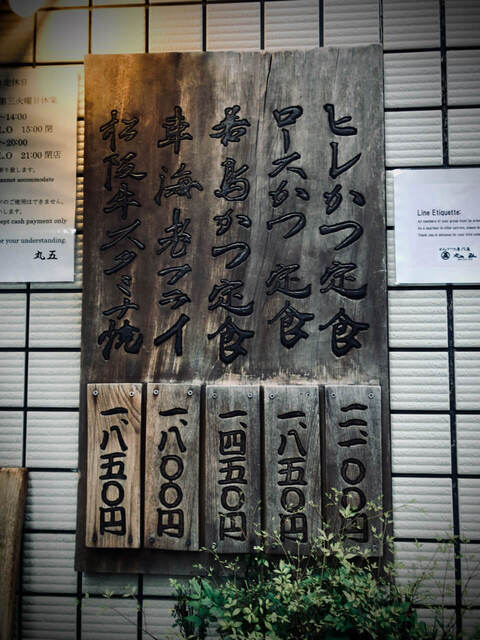 ヒレかつ定食
ロースかつ定食
若鳥かつ定食
車海老フライ
松阪牛スタミナ焼
二、一〇〇円
一、八五〇円
一、四五〇円
一、八〇〇円
一、八五〇円
定休日
第三火曜日休業
~14:00
L.O 15:00 閉
~20:00
L.O 21:00 閉店
cannot accommodate
のご使用はできません。
ept cash payment only
or your understanding.
丸五
Line Etiquette:
All members of your group must be